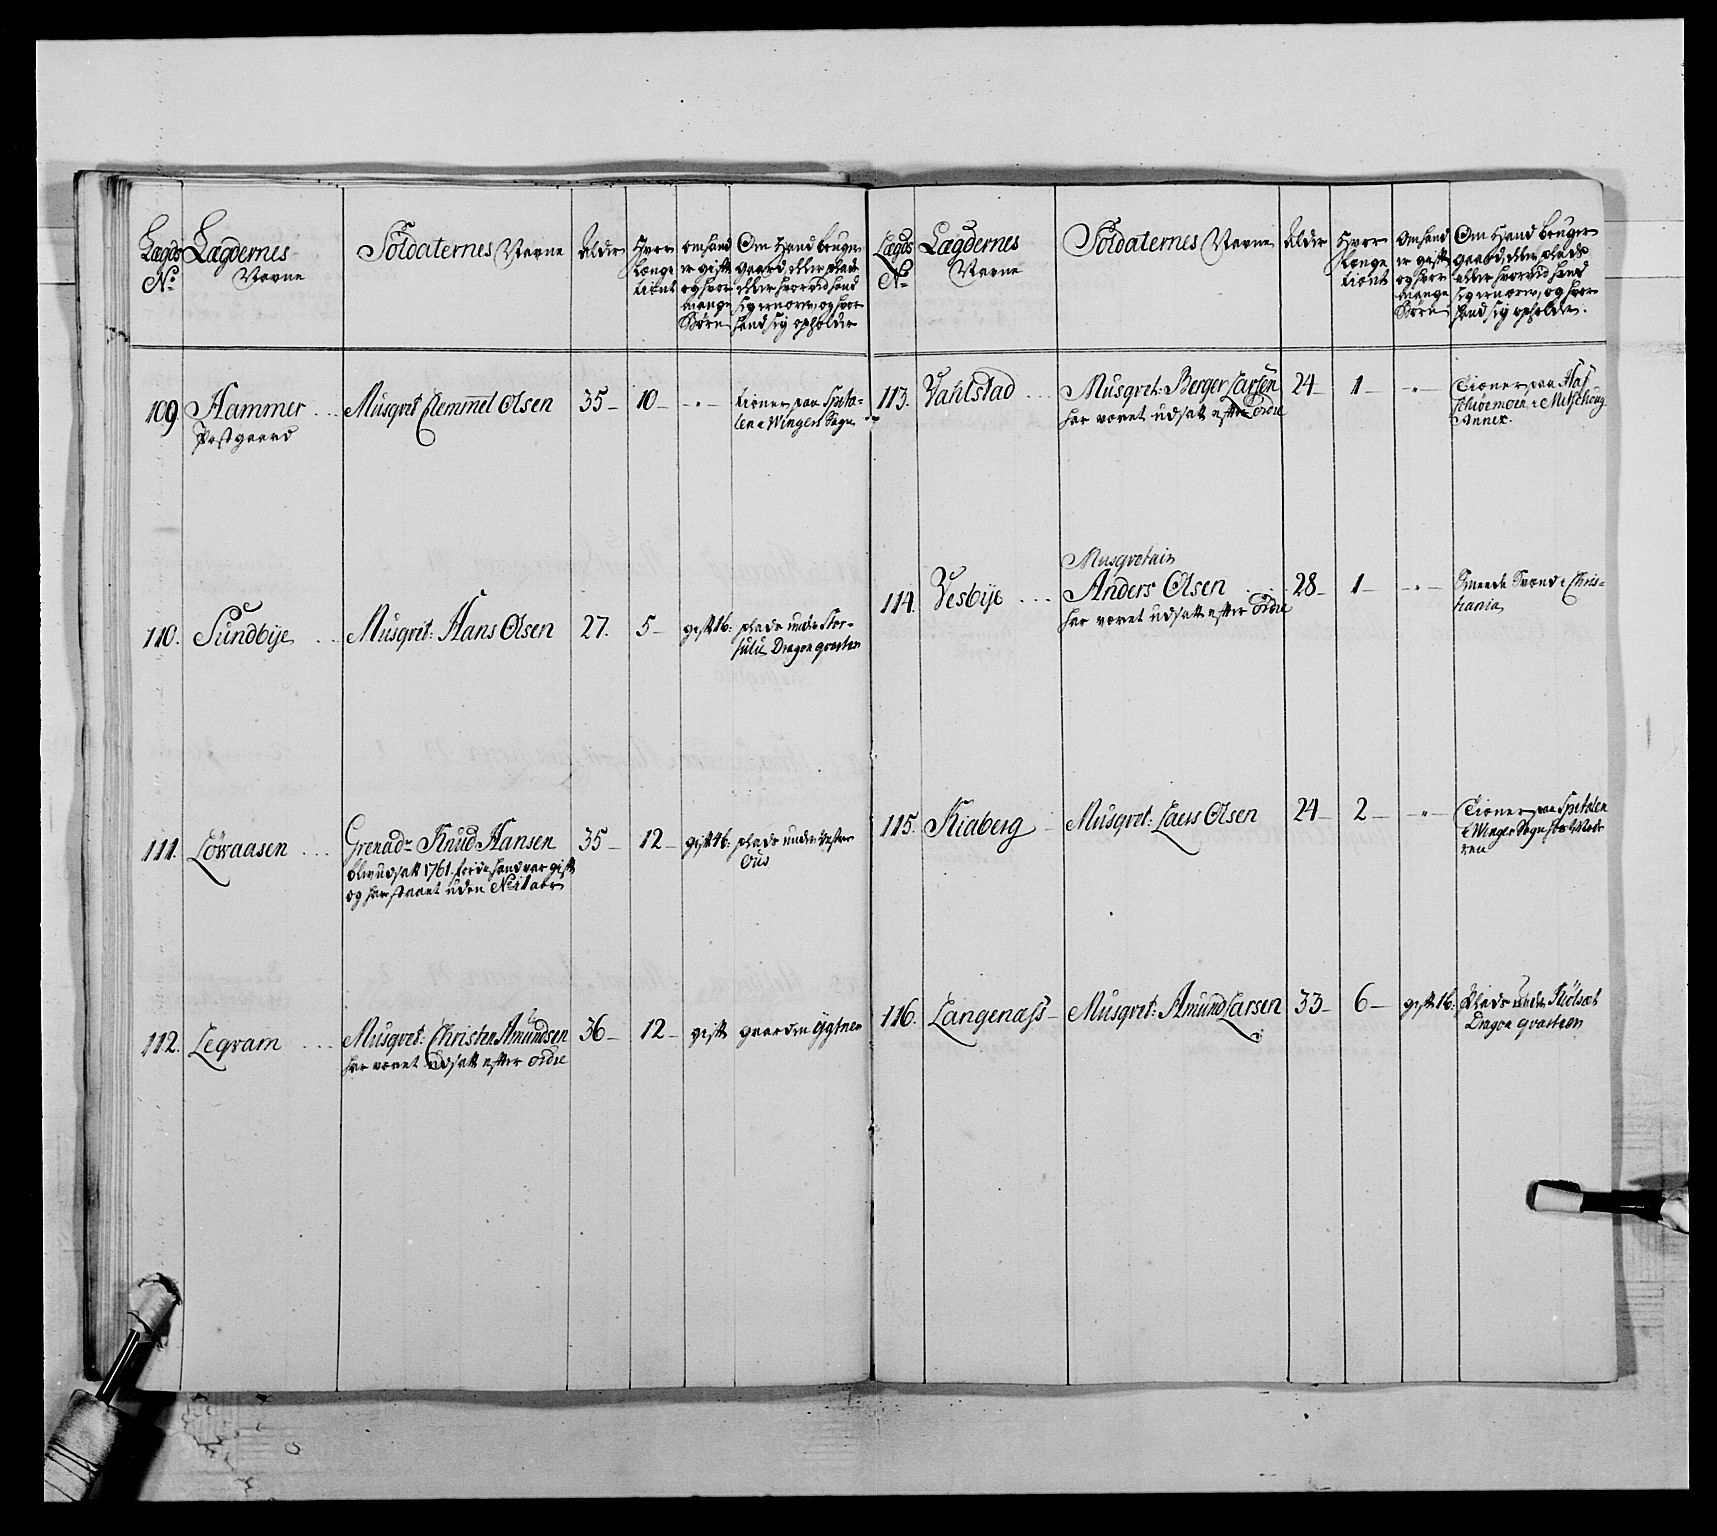 Lægds
No.
Lægdernes
Navne
Soldaternes Navne
Alder
Hvor
Længe
tient
om hand
er gift
og hvor
mange
Børn
Om Hand bruger
gaard, eller plads
eller hvorved hand
sig ernærer, og hvor
hand sig opholder
109
Hammer
Postgaard
Musqvet Clemmel Olsen
35
10
-"-
tiener paa Spita-
len i Winger Sogn
110.
Sundbije
Musqvet: Hans Olsen
27.
5
gift 1b:
plads under Stor-
Dragon qvarteer
111.
Löwaasen
Grenadr Knud Hansen
blev udsatt 1761. fordi hand var gift
og har staaet uden
35
12
gift 4b:
plads under Vester
Ous
112.
Legram
Musqvet: Christen Amundsen
har været udsatt efter ordre
36
12
gift
gaarden
Lægds
No.
Lægdernes
Navne
Soldaternes Navne
Alder
Hvor
Længe
tient
om hand
er gift
og hvor
mange
Børn
Om Hand bruger
gaard, eller plads
eller hvorved hand
sig ernærer, og hvor
hand sig opholder.
113.
Vahlstad
Musqvet: Berger Larsen
har været udsatt efter Ordre
24
1
-"-
Tiener paa
i
Annex.
114.
Vesbije
Musqvetair
Anders Olsen
har været udsatt efter Ordre
28
1
-"-
Smeede Svend i Chris-
tiania
115.
Kiaberg
Musqvet: Laers Olsen
24
2
-"-
Tiener paa Spitalen
i Winger Sogn
116.
Langenæss
Musqvet: Amund Larsen
33
6
gift 1b:
Plads under
Dragon qvarteer